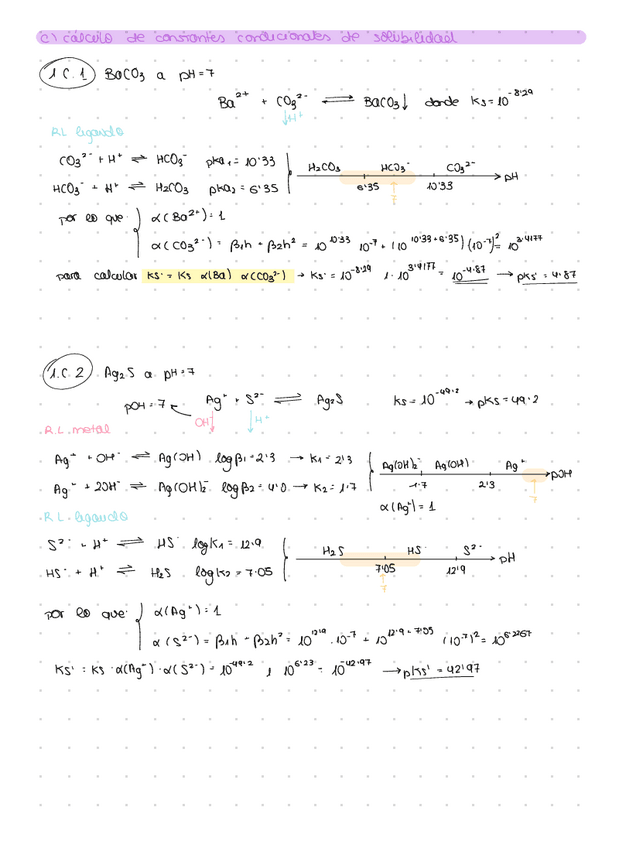 c) cálculo de constantes condicionales de solubilidad
1.C.1 BaCO3 a pH=7
Ba2+ + CO3 2- ⇌ BaCO3↓ donde Ks=10^-8'29
↓H+
R.L ligando
CO3 2- + H+ ⇌ HCO3- pka1=10'33
H2CO3 HCO3- CO3 2- pH
HCO3- + H+ ⇌ H2CO3 pka2=6'35
6'35 10'33
7
por lo que: α(Ba2+)=1
α(CO3 2-) = β1h + β2h^2 = 10^10'33 10^-7 + (10^10'33+6'35)(10^-7)^2 = 10^3'4177
para calcular Ks' = Ks α(Ba) α(CO3 2-) → Ks' = 10^-8'29 1·10^3'4177 = 10^-4'87 → pKs' = 4'87
1.C.2 Ag2S a pH=7
pOH=7 Ag+ + S2- ⇌ Ag2S Ks=10^-49'2 → pKs=49'2
OH- H+
R.L. metal
Ag+ + OH- ⇌ Ag(OH) log β1=2'3 → K1=2'3
Ag(OH)2- Ag(OH) Ag+ pOH
Ag+ + 2OH- ⇌ Ag(OH)2- log β2=4'0 → K2=1'7
1'7 2'3 7
α(Ag+)=1
R.L. ligando
S2- + H+ ⇌ HS- log K1=12'9
H2S HS- S2- pH
HS- + H+ ⇌ H2S log K2=7'05
7'05 12'9
7
por lo que: α(Ag+)=1
α(S2-) = β1h + β2h^2 = 10^12'9 · 10^-7 + 10^12'9+7'05 (10^-7)^2 = 10^6'2267
Ks' = Ks · α(Ag+) · α(S2-) = 10^-49'2 1 10^6'23 = 10^-42'97 → pKs' = 42'97